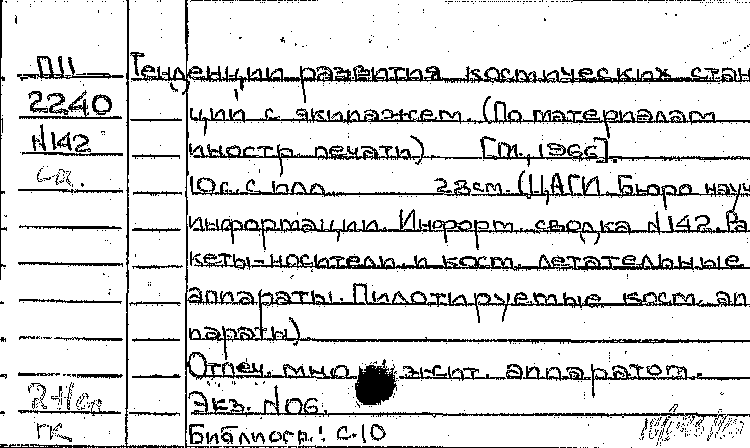 ПII
2240
N142
са.
Тенденции развития космических стан
ций с экипажем. (По материалам
иностр. печати) [М., 1966].
10с. с илл. 28см. (ЦАГИ. Бюро науч
информации. Информ. сводка N142. Ра
кеты-носители и косм. летательные
аппараты. Пилотируемые косм. ап
параты)
Отпеч. мно жит. аппаратом.
Экз. N06.
Библиогр.: с.10
ГК